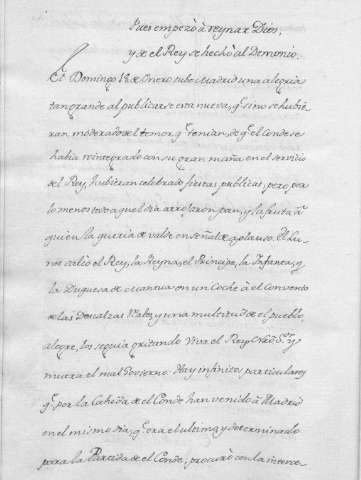 Pues empezò à reynar Dios,
y de el Rey se hechò al Demonio.
El Domingo 18 de Enero tubo Madrid una alegria
tan grande al publicarse esta nueva, q.e si no se hubie
ran moderado de el temor q.e tenian, de q.e el Conde se
habia reintegrado con su gran maña en el servicio
del Rey, hubieran celebrado fiestas publicas, pero por
lo menos todo aquel dia arrojaron pan, y la fruta à
quien la queria de valde en señal de aplauso. El Lu
nes saliò el Rey, la Reyna, el Principe, la Infanta, y
la Duquesa de Mantua en un Coche à el Convento
de las Descalzas R.s, y una multitud de el pueblo
alegre, los seguia gritando Viva el Rey S.r y
muera el mal Govierno. Hay infinitos particulares
q.e por la Cahida de el Conde han venido à Madrid
en el mismo dia, q.e era el ultimo, y determinado
para la Partida de el Conde, procurò con la interce-